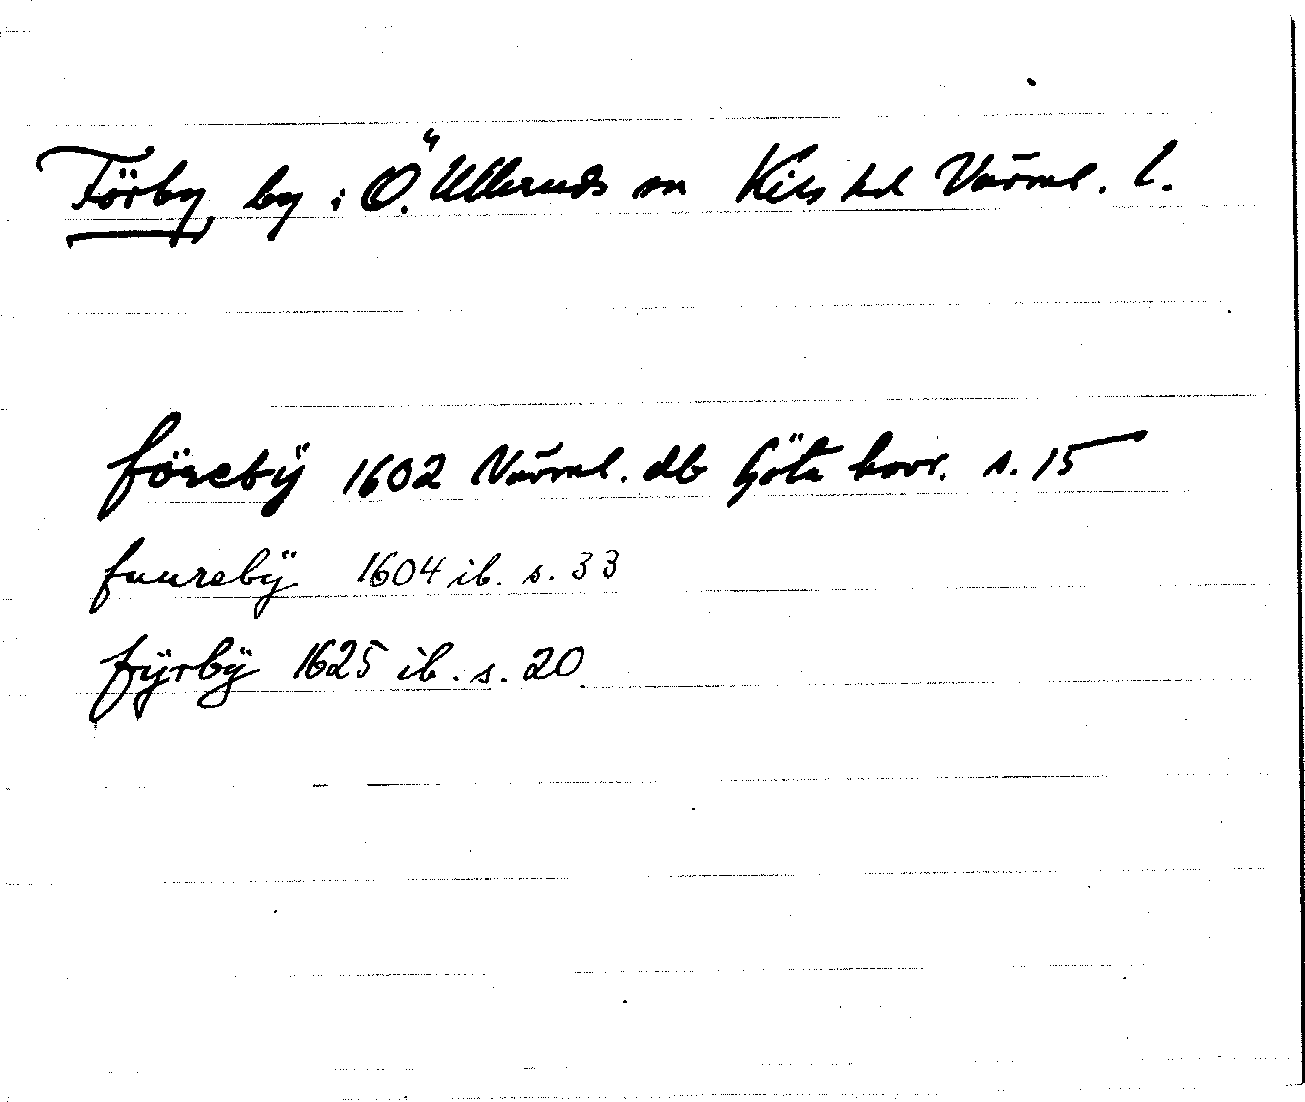 Förby, by i Ö. Ullerud sn Kils hd Värml. l.
förebÿ 1602 Värml. db Göta hovr. s. 15
fuurebÿ 1604 ib. s. 33
fÿrbÿ 1625 ib. s. 20